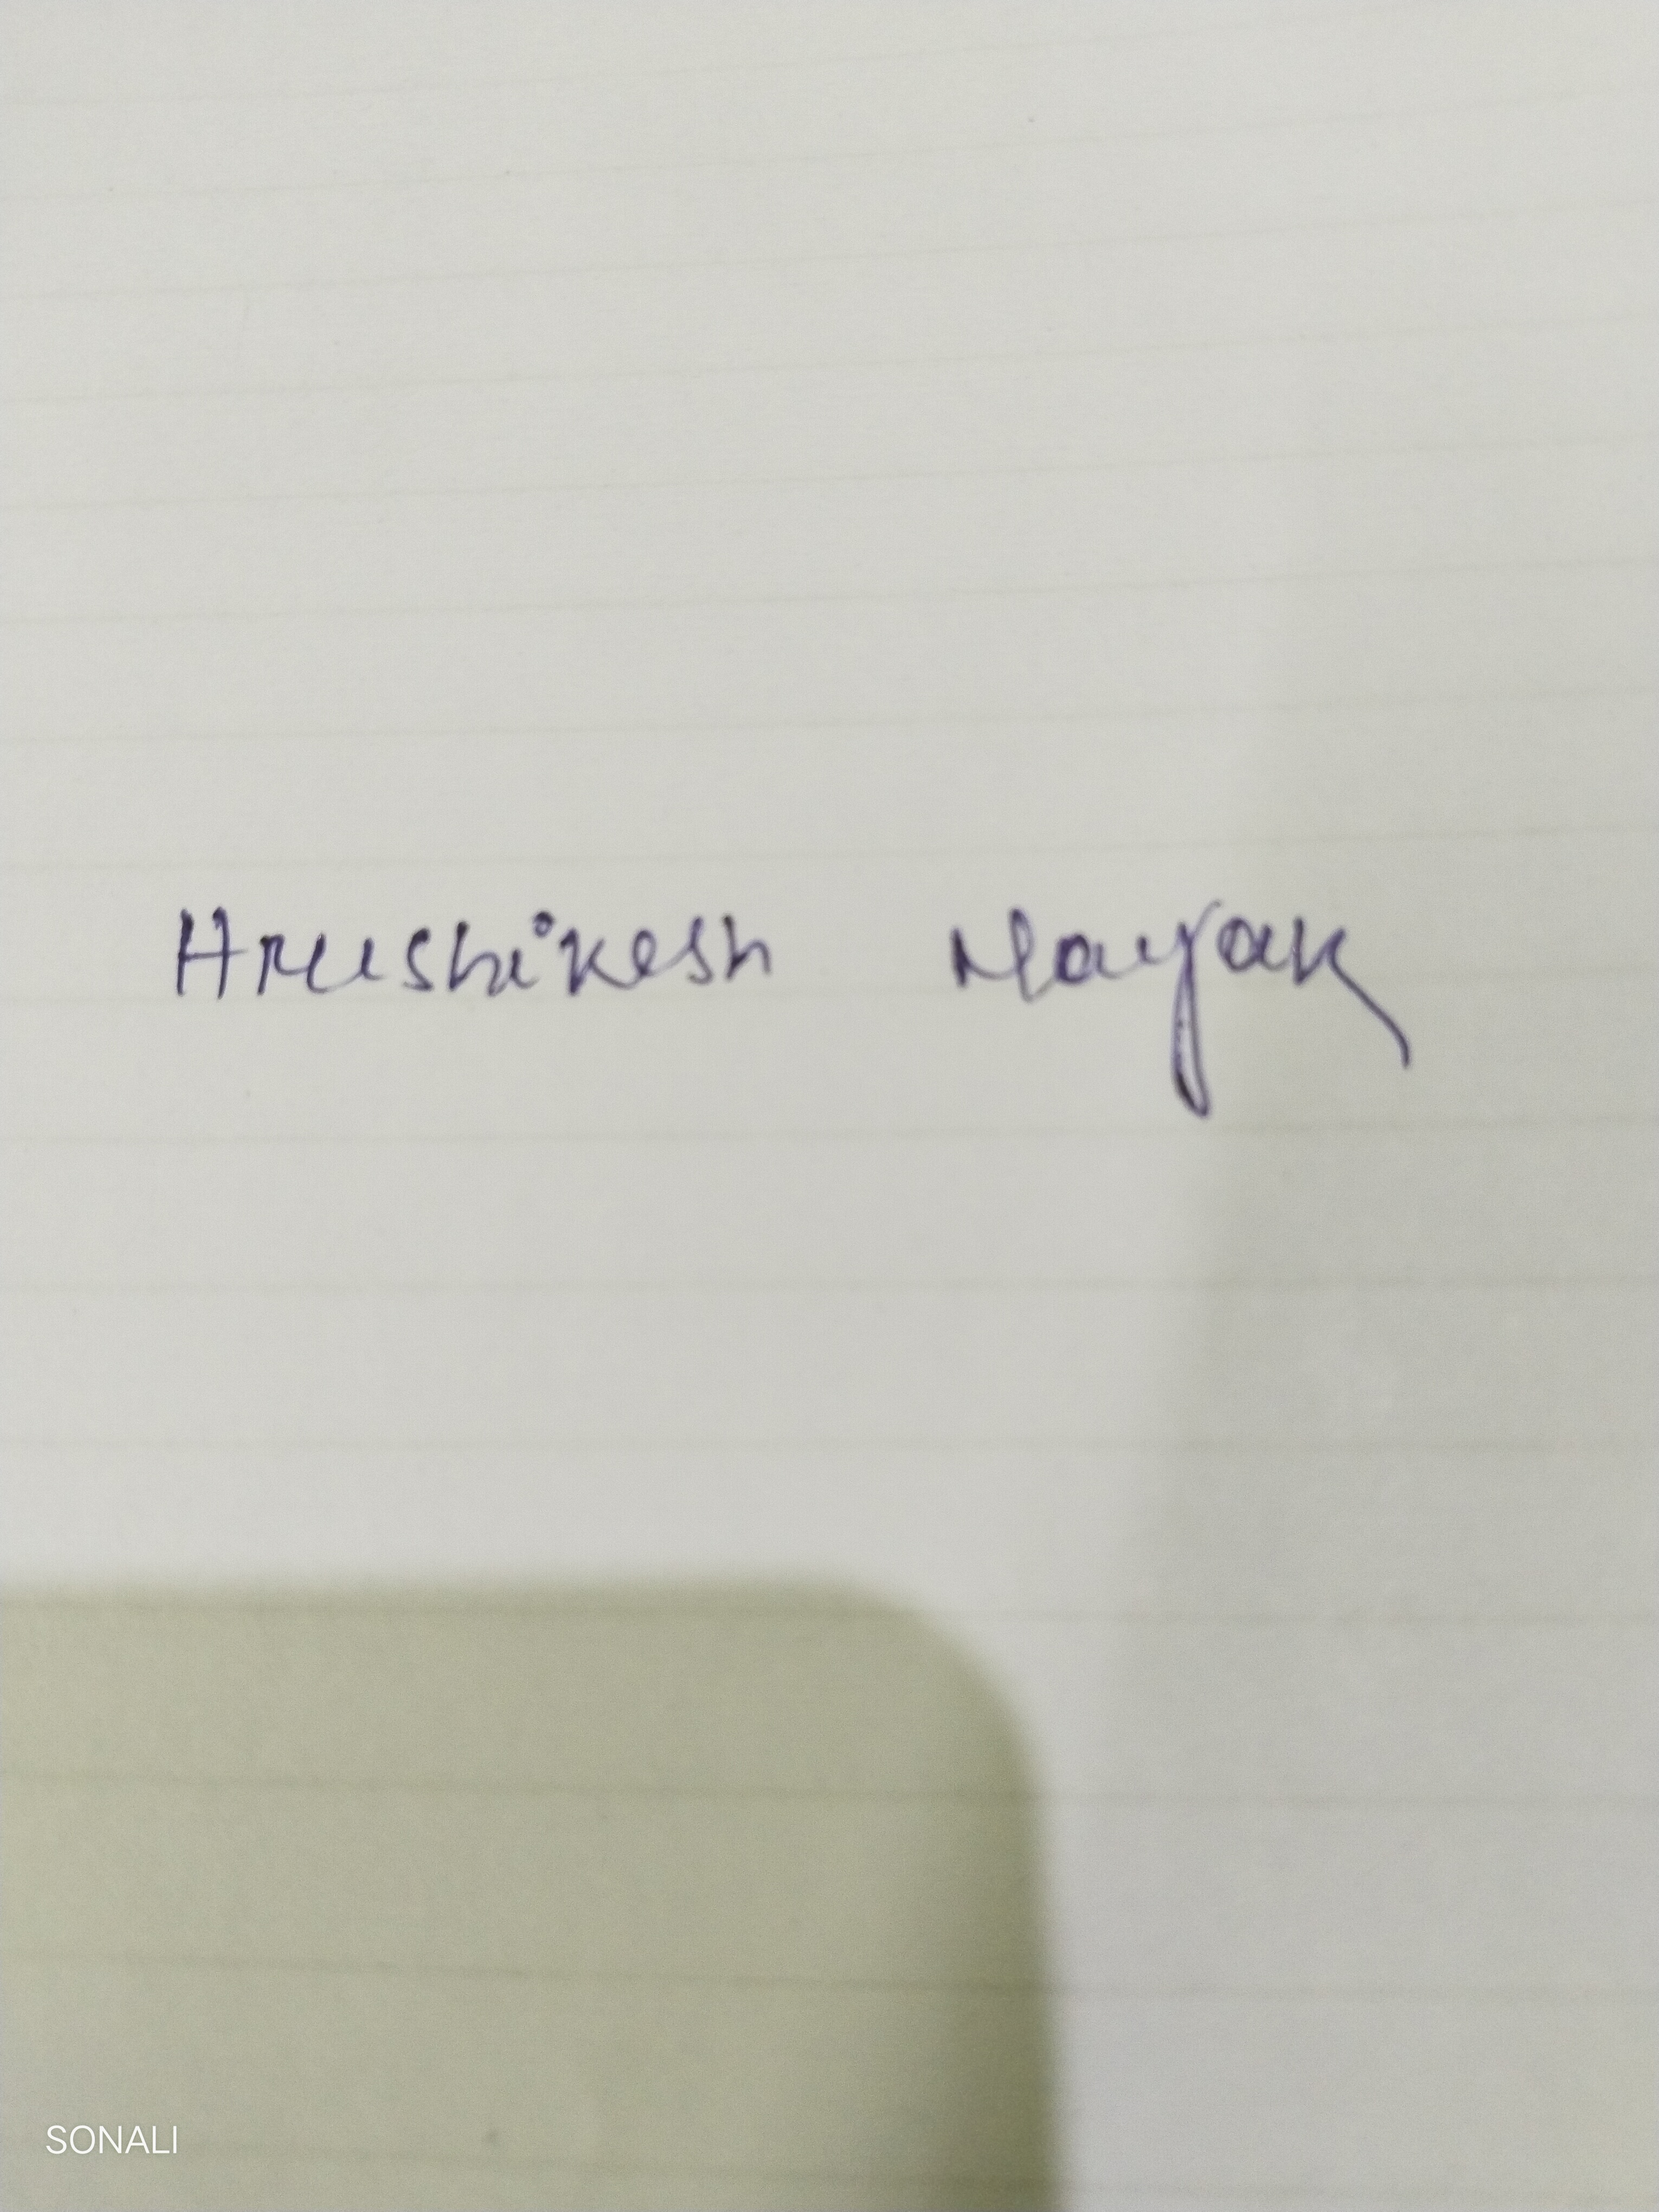 Hrushikesh Nayak
SONALI